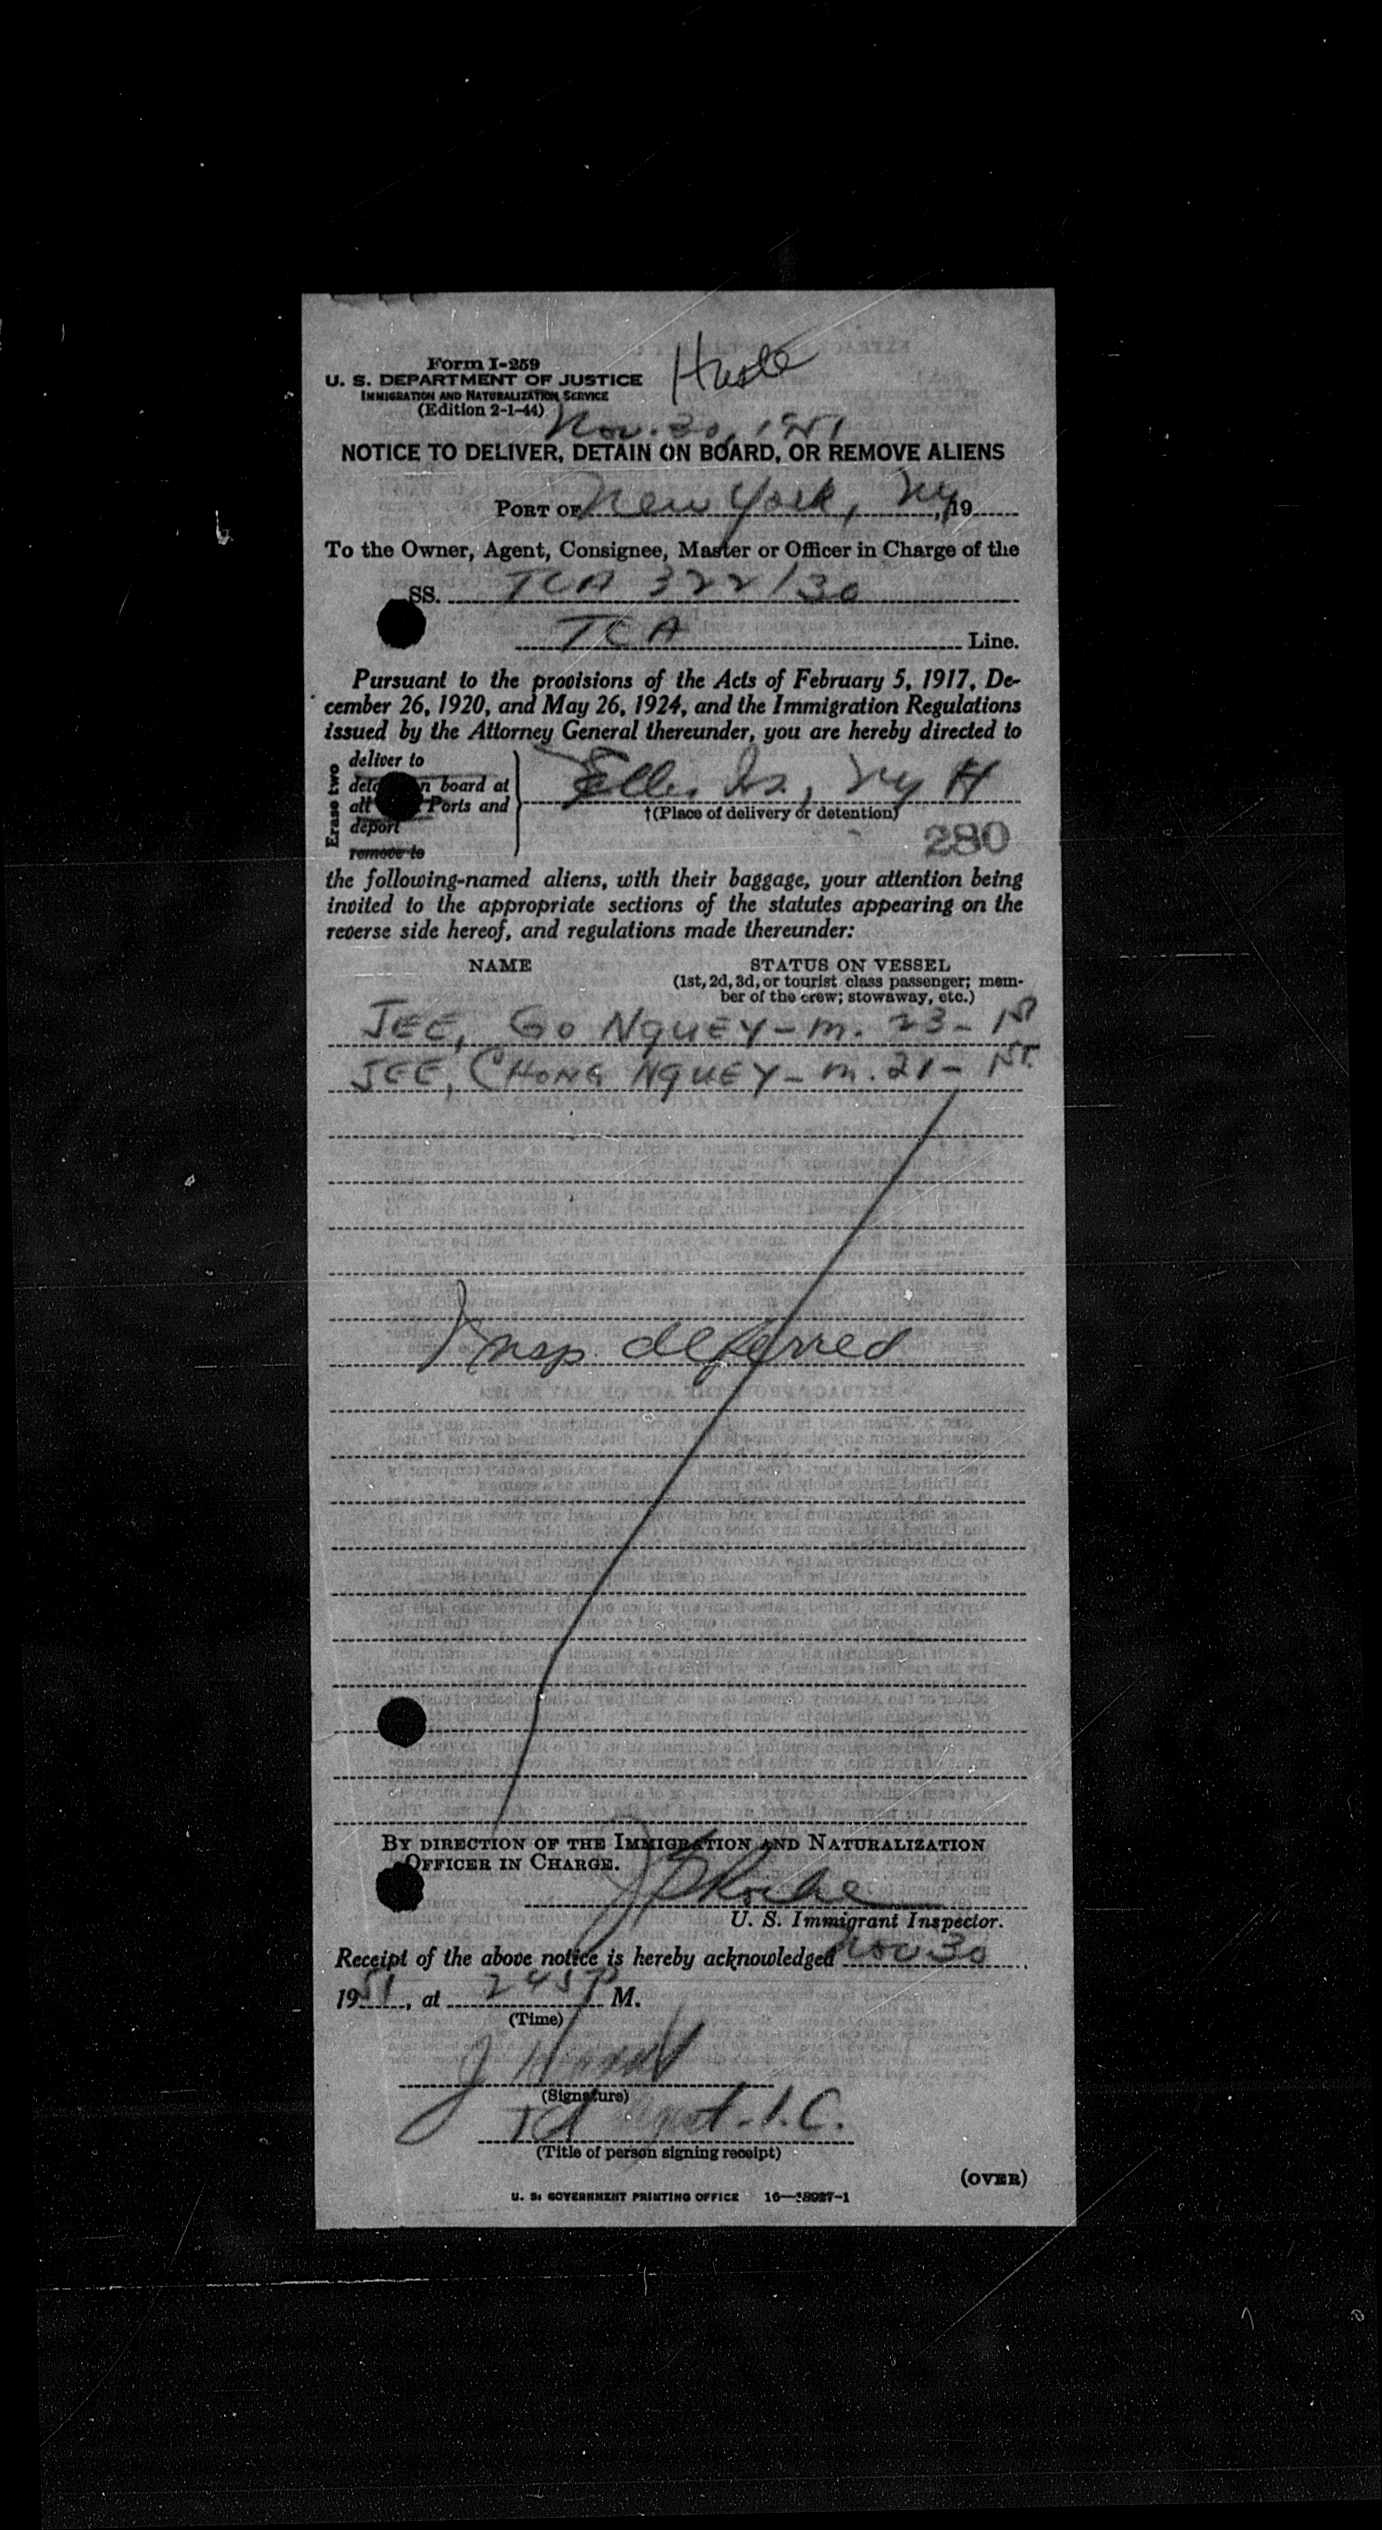 Form I-259
U. S. DEPARTMENT OF JUSTICE
IMMIGRATION AND NATURALIZATION SERVICE
(Edition 2-1-44)
Nov. 30, 1951
NOTICE TO DELIVER, DETAIN ON BOARD, OR REMOVE ALIENS
PORT OF New York, NY, 19
To the Owner, Agent, Consignee, Master or Officer in Charge of the
SS. TCA 322/30
TCA Line.
Pursuant to the provisions of the Acts of February 5, 1917, De-
cember 26, 1920, and May 26, 1924, and the Immigration Regulations
issued by the Attorney General thereunder, you are hereby directed to
Erase two
deliver to
n board at
all Ports and
deport
remove to
Ellis Is., NY H
†(Place of delivery or detention)
280
the following-named aliens, with their baggage, your attention being
invited to the appropriate sections of the statutes appearing on the
reverse side hereof, and regulations made thereunder:
NAME STATUS ON VESSEL
(1st, 2d, 3d, or tourist class passenger; mem-
ber of the crew; stowaway, etc.)
JEE, GO NQUEY - m. 23 - 1st
JEE, CHONG NQUEY - m. 21 - 1st.
Insp. deferred
BY DIRECTION OF THE IMMIGRATION AND NATURALIZATION
OFFICER IN CHARGE.
U. S. Immigrant Inspector.
Receipt of the above notice is hereby acknowledged Nov 30
1951, at 245 P M.
(Time)
J
(Signature)
Agent - I.C.
(Title of person signing receipt)
(OVER)
U. S. GOVERNMENT PRINTING OFFICE 16-18927-1